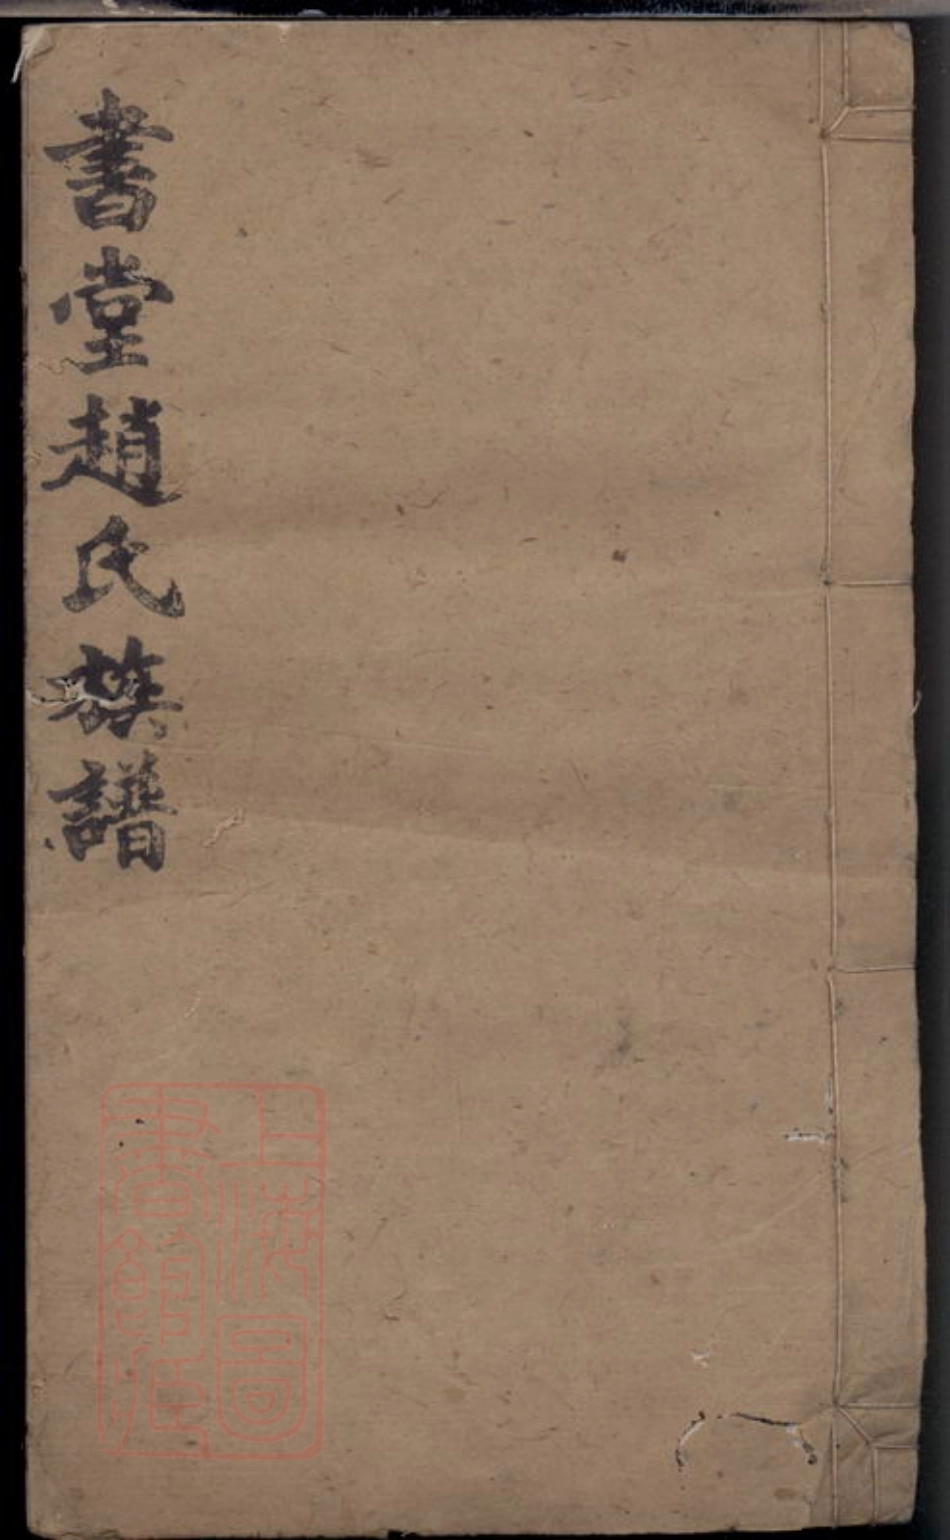 書堂趙氏族譜
上海圖
書館藏